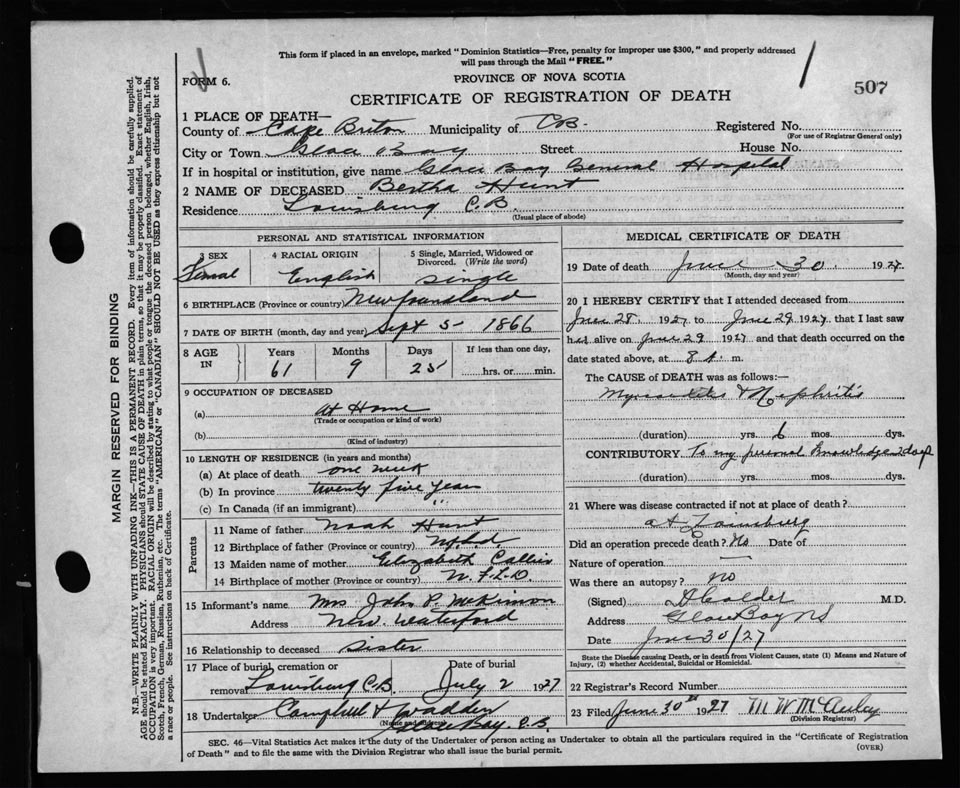 This form if placed in an envelope, marked "Dominion Statistics—Free, penalty for improper use $300," and properly addressed
will pass through the Mail "FREE."
FORM 6.
PROVINCE OF NOVA SCOTIA
507
CERTIFICATE OF REGISTRATION OF DEATH
1 PLACE OF DEATH—
County of Cape Breton Municipality of C B. Registered No.
(For use of Registrar General only)
City or Town Glace Bay Street House No.
If in hospital or institution, give name Glace Bay General Hospital
2 NAME OF DECEASED Bertha Hunt
Residence Louisburg C. B.
(Usual place of abode)
PERSONAL AND STATISTICAL INFORMATION
3 SEX 4 RACIAL ORIGIN 5 Single, Married, Widowed or
Divorced. (Write the word)
Femal English Single
6 BIRTHPLACE (Province or country) Newfoundland
7 DATE OF BIRTH (month, day and year) Sept 5 - 1866
8 AGE IN Years Months Days If less than one day,
61 9 25 hrs. or min.
9 OCCUPATION OF DECEASED
(a) At Home
(Trade or occupation or kind of work)
(b)
(Kind of industry)
10 LENGTH OF RESIDENCE (in years and months)
(a) At place of death one week
(b) In province twenty five years
(c) In Canada (if an immigrant) " "
Parents
11 Name of father Noah Hunt
12 Birthplace of father (Province or country) N.f.d.
13 Maiden name of mother Elizabeth
14 Birthplace of mother (Province or country) N. F. L. D.
15 Informant's name Mrs John P. McKinnon
Address New Waterford
16 Relationship to deceased Sister
17 Place of burial, cremation or Date of burial
removal Louisburg C.B. July 2 1927
18 Undertaker Campbell & Wadden
(Name and
Glace Bay. C. B.
MEDICAL CERTIFICATE OF DEATH
19 Date of death June 30. 1927.
(Month, day and year)
20 I HEREBY CERTIFY that I attended deceased from
June 28 1927 to June 29 1927 that I last saw
her alive on June 29 1927 and that death occurred on the
date stated above, at 8 A. m.
The CAUSE of DEATH was as follows:—
Myocarditis & Nephritis
(duration) yrs. 6 mos. dys.
CONTRIBUTORY. To my personal knowledge 2 days
(duration) yrs. mos. dys.
21 Where was disease contracted if not at place of death?
at Louisburg
Did an operation precede death? No Date of
Nature of operation —
Was there an autopsy? no
(Signed) A Calder M.D.
Address Glace Bay NS
Date June 30/27
State the Disease causing Death, or in death from Violent Causes, state (1) Means and Nature of
Injury, (2) whether Accidental, Suicidal or Homicidal.
22 Registrar's Record Number
23 Filed June 30th 1927 M W McAuley
(Division Registrar)
SEC. 46—Vital Statistics Act makes it the duty of the Undertaker or person acting as Undertaker to obtain all the particulars required in the "Certificate of Registration
of Death" and to file the same with the Division Registrar who shall issue the burial permit.
(OVER)
MARGIN RESERVED FOR BINDING
N.B.—WRITE PLAINLY WITH UNFADING INK—THIS IS A PERMANENT RECORD. Every item of information should be carefully supplied.
AGE should be stated EXACTLY. PHYSICIANS should STATE CAUSE OF DEATH in plain terms, so that it may be properly classified. Exact statement of
OCCUPATION is very important. RACIAL ORIGIN will be described by stating to what people or tongue the deceased person belonged, whether English, Irish,
Scotch, French, German, Russian, Ruthenian, etc. The terms "AMERICAN" or "CANADIAN" SHOULD NOT BE USED as they express citizenship but not
a race or people. See instructions on back of Certificate.